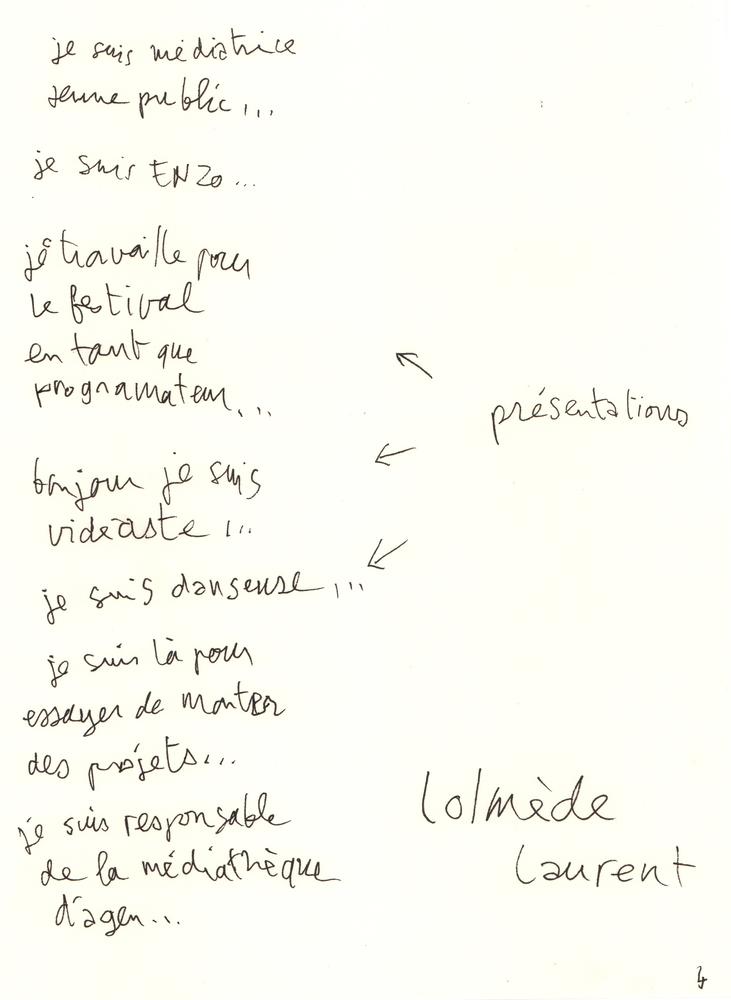 je suis médiatrice
jeune public...
je suis ENZO...
je travaille pour
le festival
en tant que
programateur...
présentations
bonjour je suis
vidéaste...
je suis danseuse...
je suis là pour
essayer de monter
des projets...
je suis responsable
de la médiathèque
d'agen...
lolmède
laurent
4